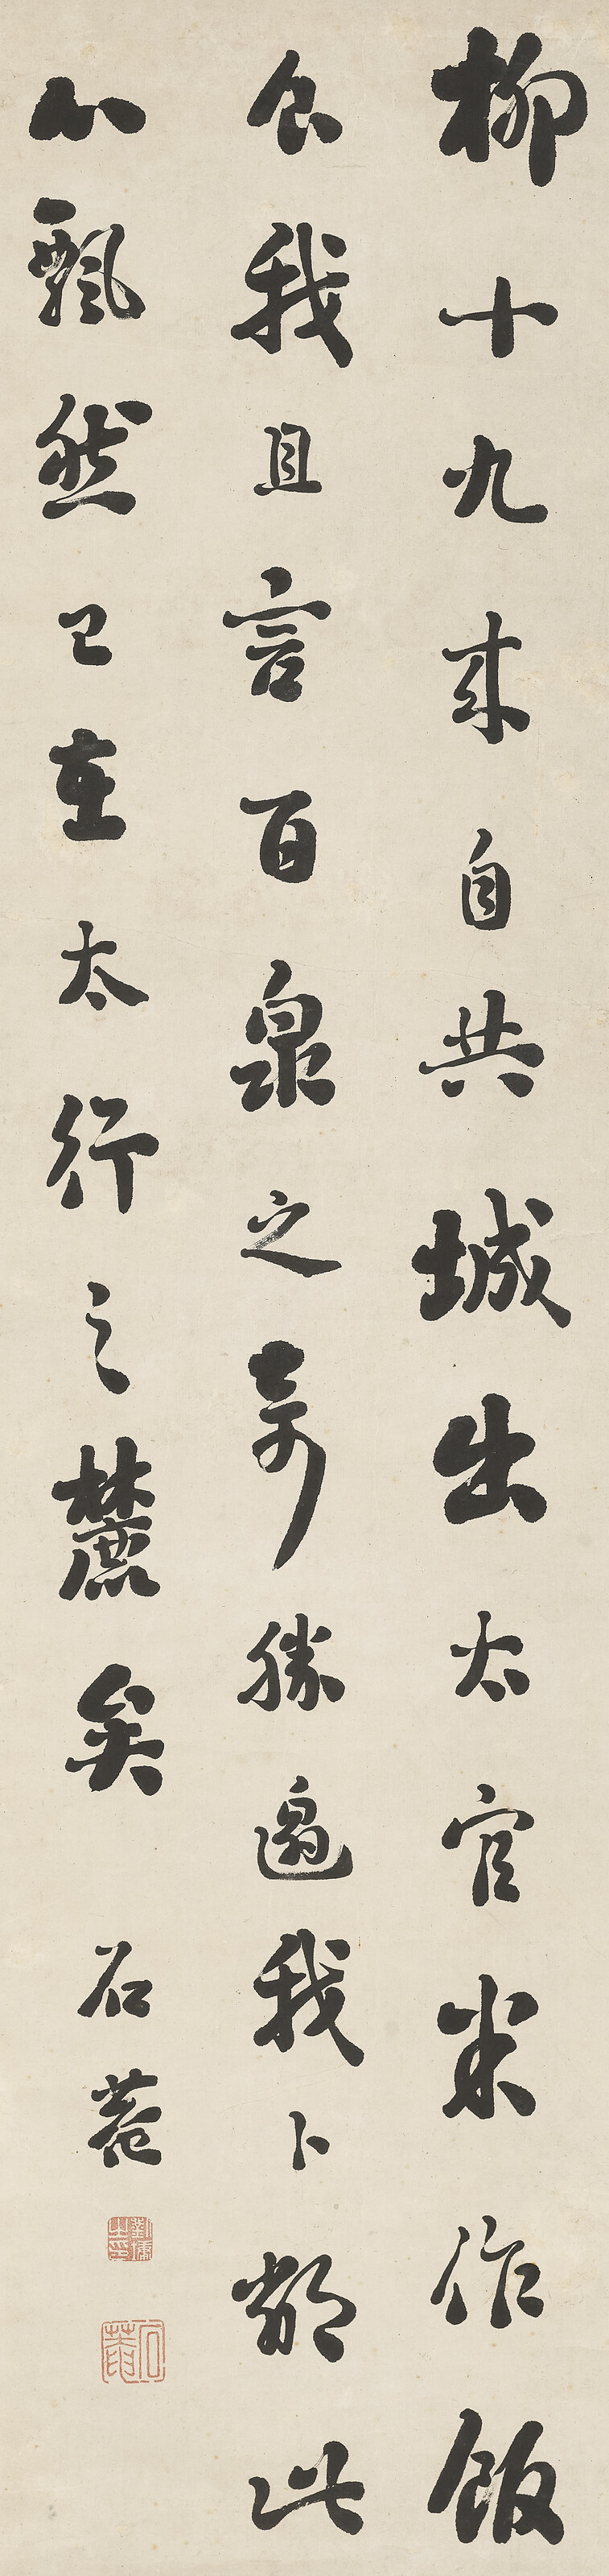 柳十九來自共城出太官米作飯
食我且言百泉之奇勝邀我卜鄰此
心飄然已在太行之麓矣
石菴
劉墉之印
石菴